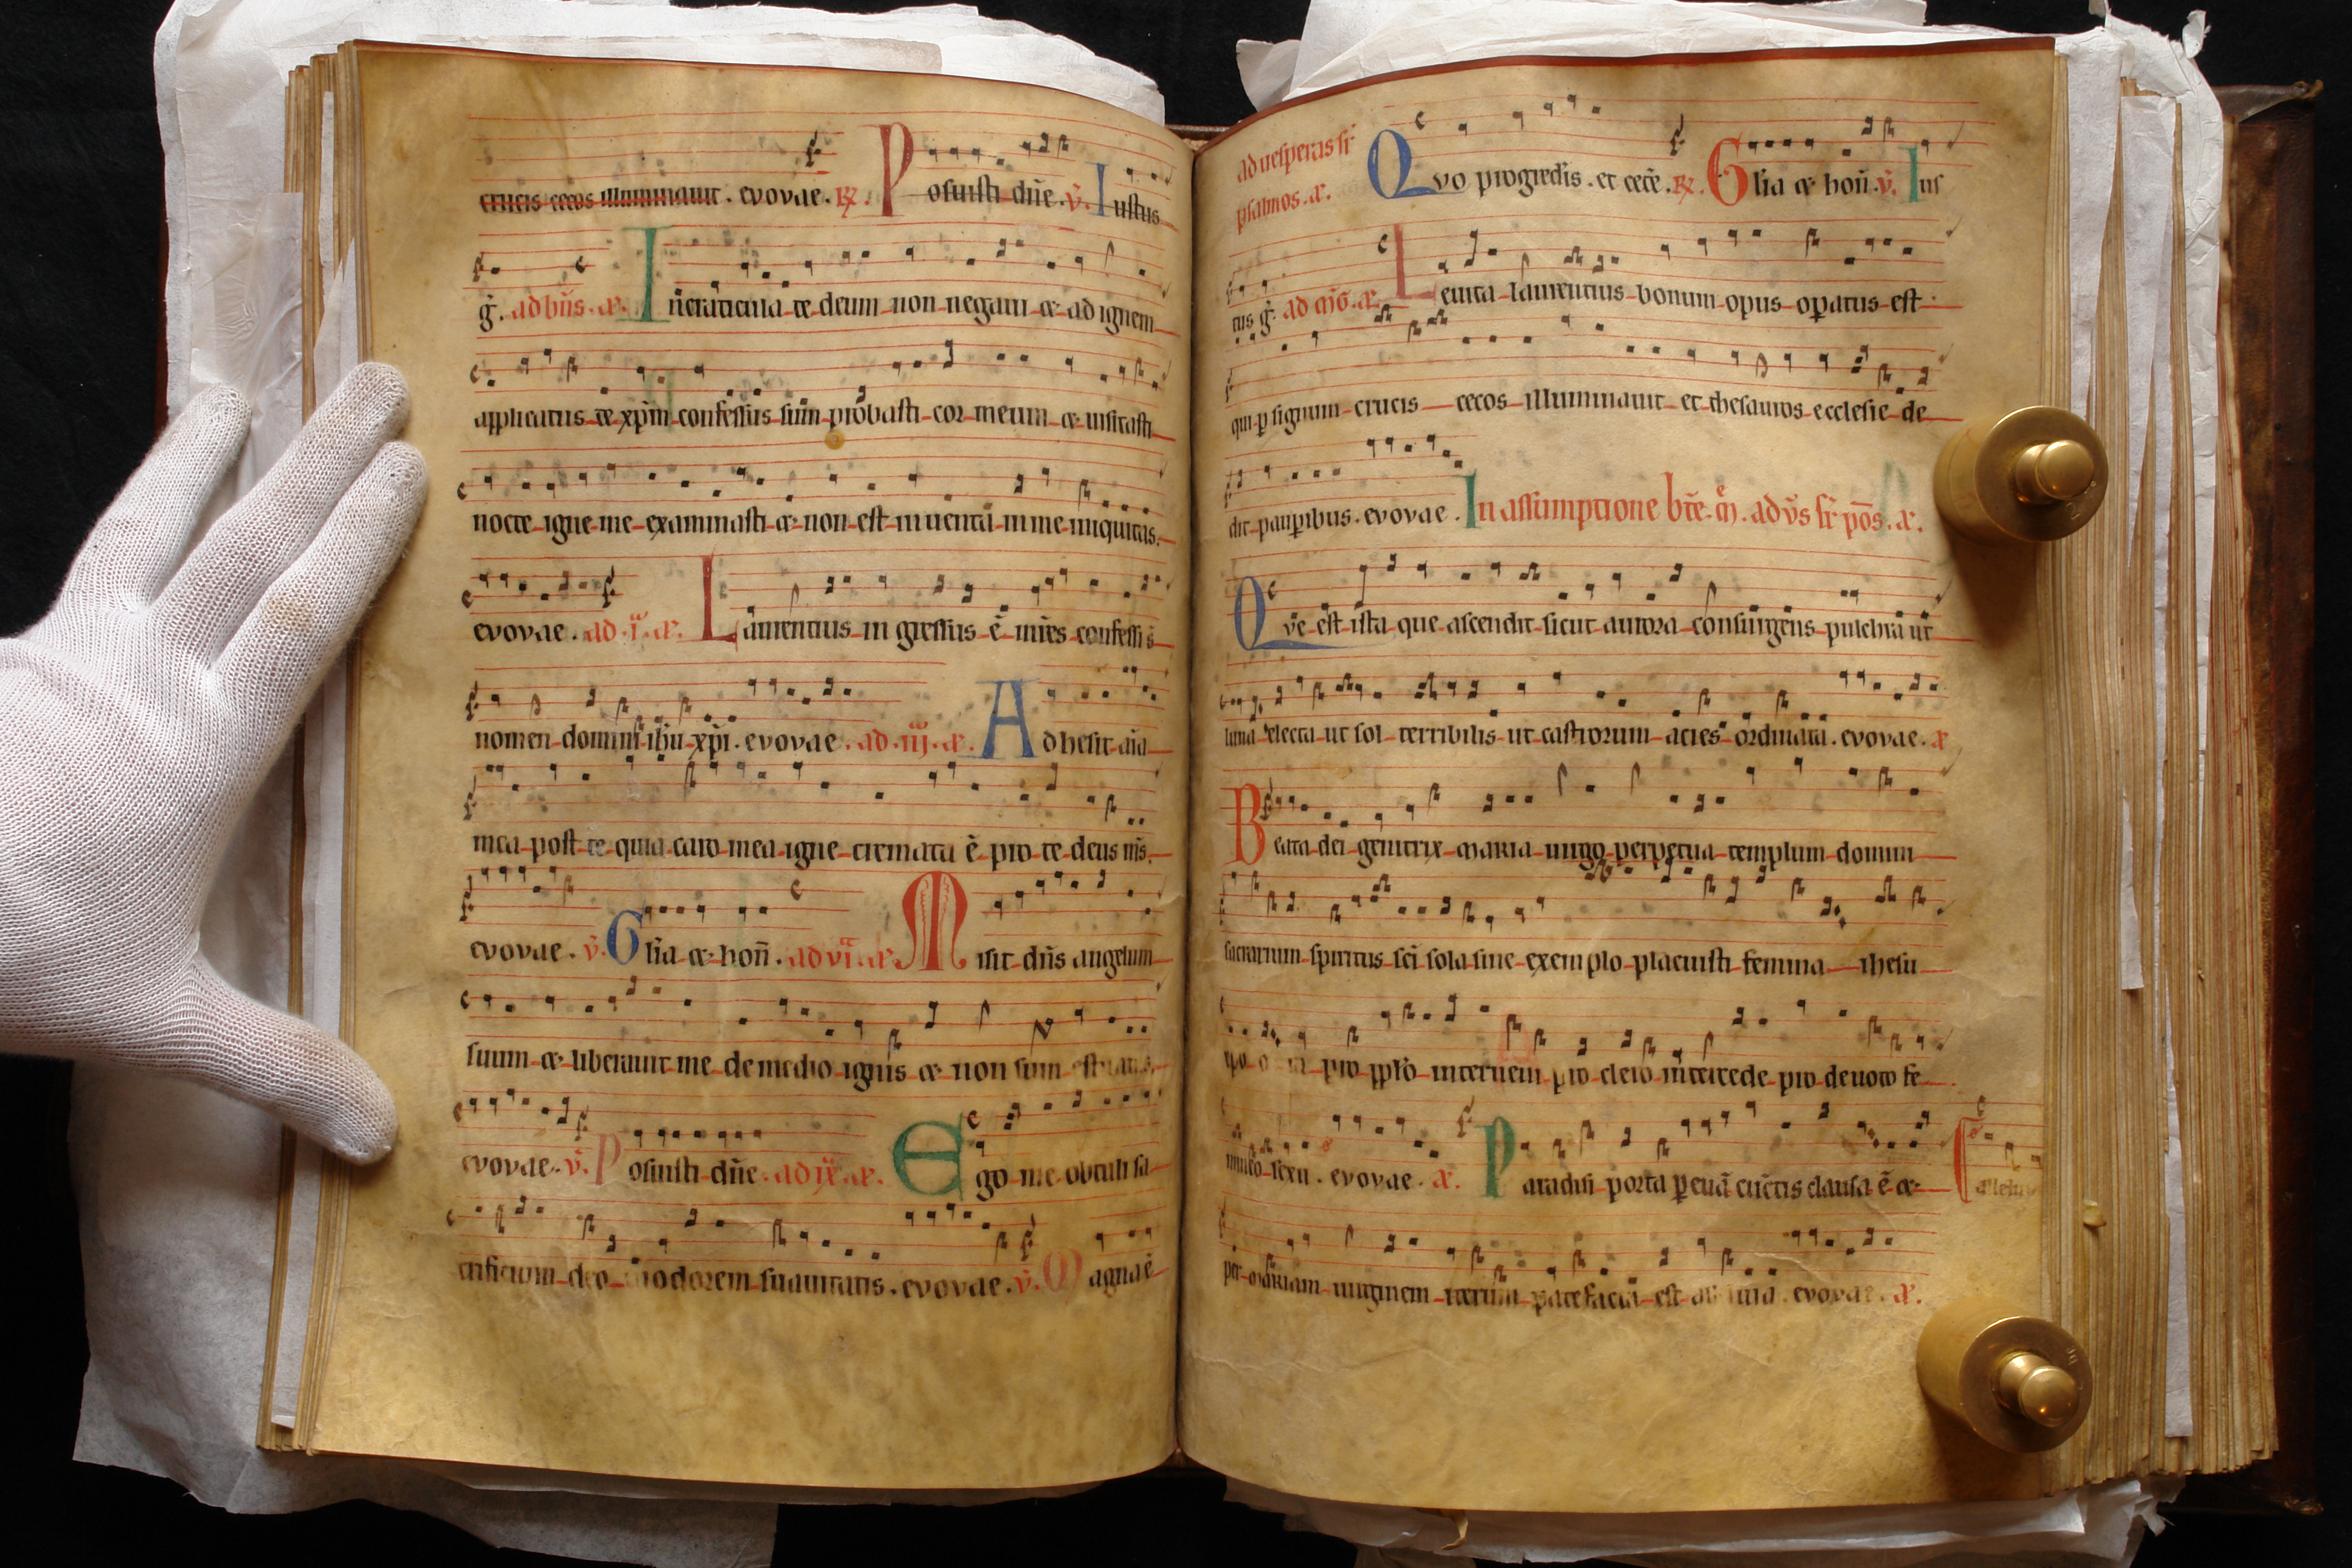 crucis cecos illuminauit. evovae. R̷. Posuisti dn̄e. v̄. Iustus
g̍. ad bn̄s. æ. In̄ craticula te deum non negaui & ad ignem
applicatus te xp̄m confessus sum probasti cor meum & uisitasti
nocte igne me examinasti & non est inuenta in me iniquitas.
evovae. ad .i. æ. Laurentius in gressus ē mr̄es confessꝰ ē
nomen domini ih̄u xp̄i. evovae. ad .iij. æ. Adhesit aīa
mea post te quia caro mea igne cremata ē pro te deus ms̄.
evovae. v̄. Gl̄ia & hon̄. ad vi. æ. Misit dn̄s angelum
suum & liberauit me de medio ignis & non sum
evovae. v̄. Posuisti dn̄e. ad ix. æ. Ego me obtuli sa
crificium deo odorem suauitatis. evovae. v̄. Magna ē
ad uesperas sr̄
psalmos. æ.
Qvo progredis. et cete̅. R̷. Gl̄ia & hon̄. v̄. Ius
tus g̍. ad m̄g. æ. Leuita laurentius bonum opus op̱atus est.
qui p̱ signum crucis cecos illuminauit et thesauros ecclesie de
dit paup̱ibus. evovae. In assumptione bt̄e. m̄. ad vs̄ sr̄ pos̄. æ.
Qve est ista que ascendit sicut aurora consurgens pulchra ut
luna electa ut sol terribilis ut castrorum acies ordinata. evovae. æ
Beata dei genitrix maria uirgo perpetua templum domini
sacrarium spiritus sc̄i sola sine exemplo placuisti femina ihesu
pro pp̄lo interueni pro clero intercede pro deuoto fe
mineo sexu. evovae. æ. Paradisi porta p̱ euā cūctis clausa ē &
alleluia
per mariam uirginem iterum patefacta est evovae. æ.